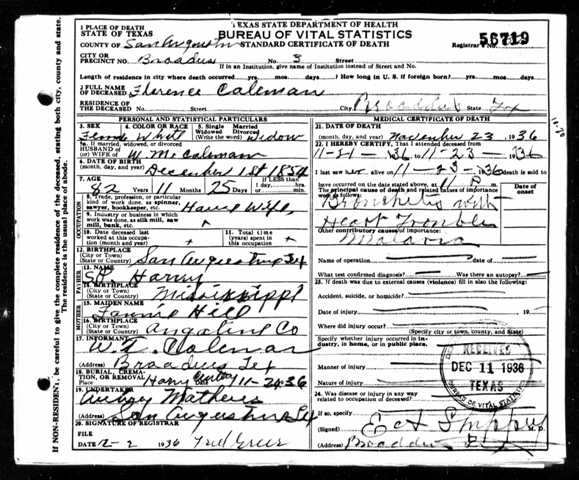 TEXAS STATE DEPARTMENT OF HEALTH
BUREAU OF VITAL STATISTICS
STANDARD CERTIFICATE OF DEATH
56719
Registrar's No.
1 PLACE OF DEATH
STATE OF TEXAS
COUNTY OF San Augustine
CITY OR PRECINCT NO. Broaddus No. 5 Street
If in an Institution, give name of Institution instead of Street and No.
Length of residence where death occurred yrs. mos. days. How long in U. S. if foreign born? yrs. mos. days.
2 FULL NAME OF DECEASED Florence Coleman
RESIDENCE OF THE DECEASED No. Street City Broaddus State Tex
PERSONAL AND STATISTICAL PARTICULARS
3. SEX 4. COLOR OR RACE 5. Single Married Widowed Divorced (Write the word) Widow
5a. If married, widowed or divorced
HUSBAND of (or) WIFE of W. M. Coleman
6. DATE OF BIRTH December 1st 1854
7. AGE 82 11 25 If LESS than 1 day, hrs. min.
8. Trade, profession, or particular kind of work done, as spinner, sawyer, bookkeeper, etc. House Wife
9. Industry or business in which work was done, as silk mill, saw mill, bank, etc.
10. Date deceased last worked at this occupation (month and year)
11. Total time (years) spent in this occupation
12. BIRTHPLACE (City or Town) (State or Country) San Augustine Tex
13. NAME
14. BIRTHPLACE (City or Town) (State or Country) Mississippi
15. MAIDEN NAME Fannie Hill
16. BIRTHPLACE (City or Town) (State or Country) Angeline Co
17. INFORMANT (Address) Coleman
Broaddus Tex
18. BURIAL, CREMATION, OR REMOVAL Place 11-24-36
19. UNDERTAKER (Address) Mathews
San Augustine Tex
20. SIGNATURE OF REGISTRAR
FILE DATE 12-2 1936 Fred Greer
MEDICAL CERTIFICATE OF DEATH
21. DATE OF DEATH (month, day, and year) November 23, 1936
22. I HEREBY CERTIFY, That I attended deceased from 11-21 1936 to 11-23 1936
I last saw alive on 11-23-1936 death is said to have occurred on the date stated above, at m.
The principal cause of death and related causes of importance Date of onset
Bronchitis with
Heart Trouble
Other contributory causes of importance:
Malaria
Name of operation date of
What test confirmed diagnosis? Was there an autopsy?
23. If death was due to external causes (violence) fill in also the following:
Accident, suicide, or homicide?
Date of injury 19
Where did injury occur?
(Specify city or town, county, and State)
Specify whether injury occurred in industry, in home, or in public place.
Manner of injury
Nature of injury
24. Was disease or injury in any way related to occupation of deceased?
If so, specify
(Signed) M. D.
(Address) Broaddus
RECEIVED
DEC 11 1936
TEXAS
BUREAU OF VITAL STATISTICS
OCCUPATION
FATHER
MOTHER
If NON-RESIDENT, be careful to give the complete residence of the deceased, stating both city, county and state.
The residence is the usual place of abode.